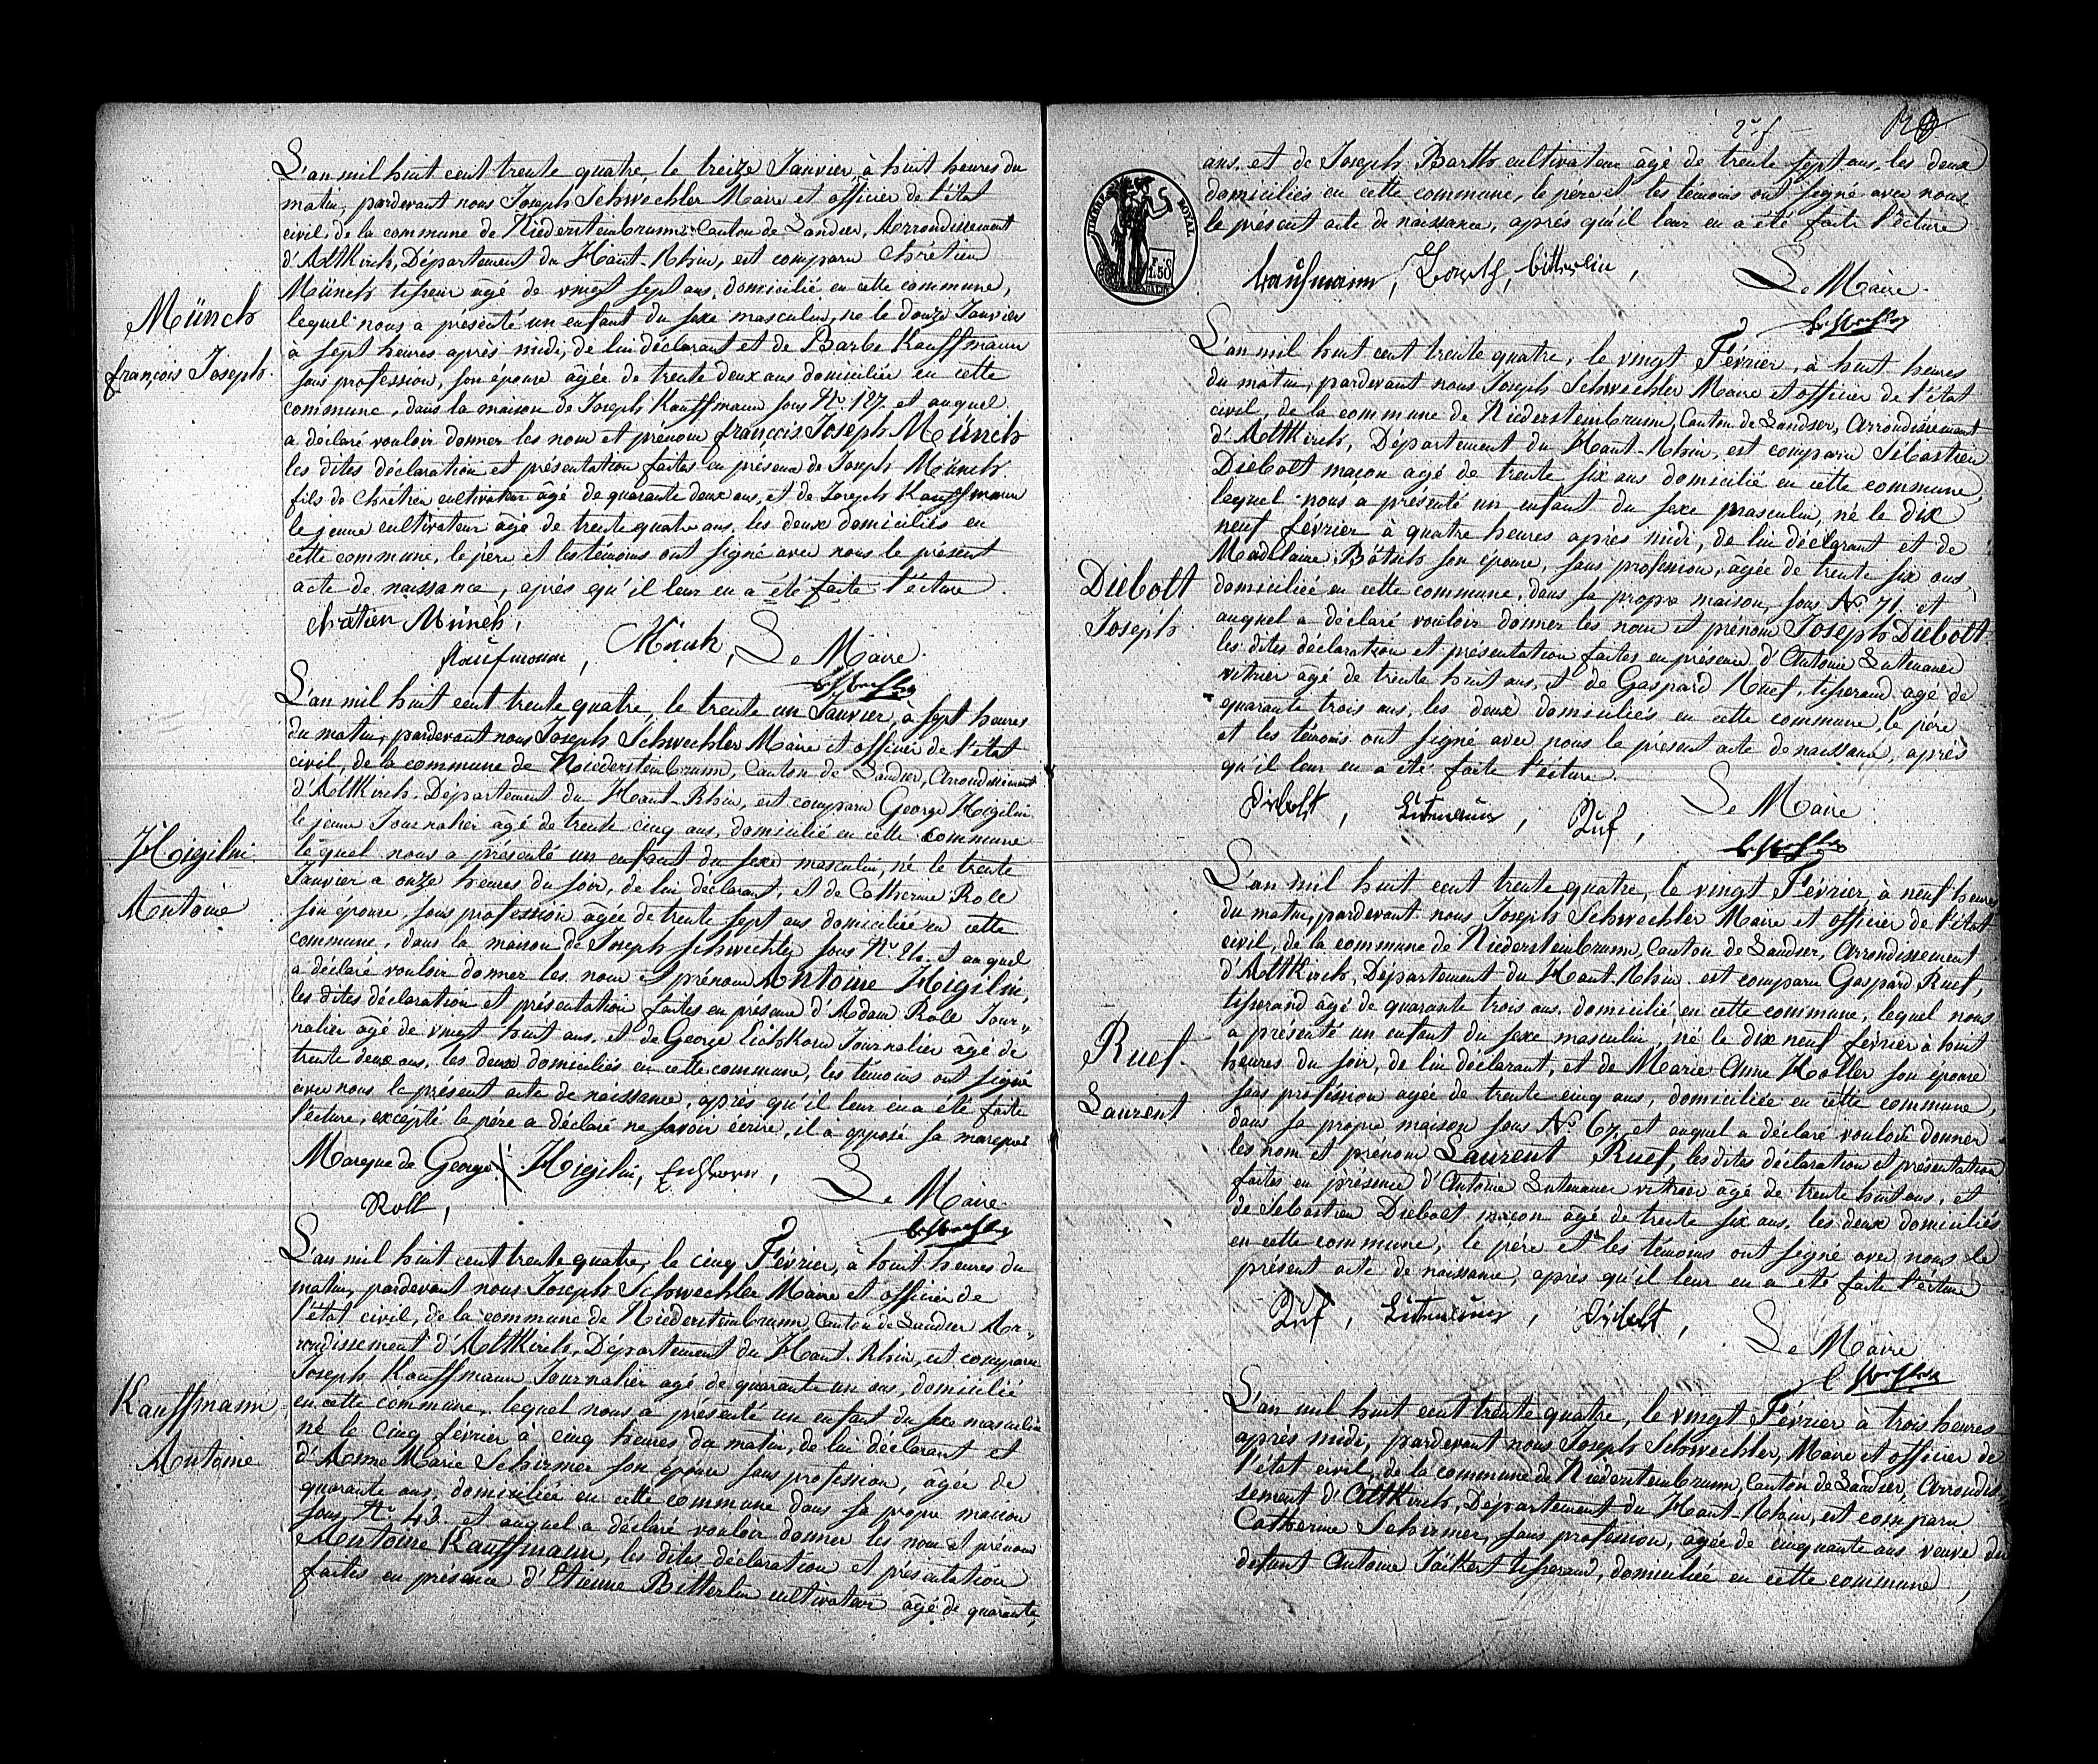 L'an mil huit cent trente quatre, le treize Janvier, à huit heures du
matin, pardevant nous Joseph Schwechler Maire et officier de l'état
civil, de la commune de Niedersteinbrunn, Canton de Landser, Arrondissement
d'Altkirch, Département du Haut-Rhin, est comparu Chrétien
Münch tisseur agé de vingt sept ans, domicilié en cette commune,
lequel nous a présenté un enfant du sexe masculin, né le douze Janvier
à sept heures après midi, de lui déclarant et de Barbe Kauffmann
sans profession, son épouse âgée de trente deux ans domiciliée en cette
commune, dans la maison de Joseph Kauffmann sous N° 127. et auquel
a déclaré vouloir donner les nom et prénom françois Joseph Münch
les dites déclaration et présentation faites en présence de Joseph Münch
fils de Chrétien cultivateur âgé de quarante deux ans, et de Joseph Kauffmann
le jeune cultivateur âgé de trente quatre ans, les deux domiciliés en
cette commune, le père et les témoins ont signé avec nous le présent
acte de naissance, après qu'il leur en a été faite l'écture.
Münch
françois Joseph.
chrétien Münch,
Kaufmann, Münch, Le Maire.
L'an mil huit cent trente quatre, le trente un Janvier, à sept heures
du matin, pardevant nous Joseph Schwechler Maire et officier de l'état
civil, de la commune de Niedersteinbrunn, Canton de Landser, Arrondissement
d'Altkirch, Département du Haut-Rhin, est comparu George Higilin
le jeune Journalier âgé de trente cinq ans, domicilié en cette commune
lequel nous a présenté un enfant du sexe masculin, né le trente
Janvier a onze heures du soir, de lui déclarant, et de Catherine Roll
son épouse, sans profession âgée de trente sept ans domiciliée en cette
commune, dans la maison de Joseph Schwechler sous N° et auquel
a déclaré vouloir donner les nom et prénom Antoine Higilin,
les dites déclaration et présentation faites en présence d'Adam Roll Jour„
nalier âgé de vingt huit ans, et de George Eichkorn Journalier âgé de
trente deux ans, les deux domiciliés en cette commune, les témoins ont signé
avec nous le présent acte de naissance, après qu'il leur en a été faite
l'écture, excépté le père a déclaré ne savoir écrire, il a apposé sa marque
Higilin
Antoine
Marque de George X Higilin, Eichhorn,
Roll, Le Maire.
L'an mil huit cent trente quatre, le cinq Février, à huit heures du
matin, pardevant nous Joseph Schwechler Maire et officier de
l'état civil, de la commune de Niedersteinbrunn, Canton de Landser Ar„
rondissement d'Altkirch, Département du Haut-Rhin, est comparu
Joseph Kauffmann Journalier agé de quarante un ans, domicilié
en cette commune, lequel nous a présenté un enfant du sexe masculin
né le cinq février à cinq heures du matin, de lui déclarant et
d'Anne Marie Schirmer son épouse sans profession, âgée de
quarante ans, domiciliée en cette commune dans sa propre maison
sous N° 43. et auquel a déclaré vouloir donner les nom et prénom
Antoine Kauffmann, les dites déclaration et présentation
faites en présence d'Etienne Bitterlin cultivateur âgé de quarante
Kauffmann
Antoine
2e f
ans, et de Joseph Barth cultivateur âgé de trente sept ans, les deux
domiciliés en cette commune, le père et les témoins ont signé avec nous
le présent acte de naissance, après qu'il leur en a été faite l'écture
TIMBRE ROYAL
1.50
Kaufmann, Joseph, bitterlin,
Le Maire.
L'an mil huit cent trente quatre, le vingt Février, à huit heures
du matin, pardevant nous Joseph Schwechler Maire et officier de l'état
civil, de la commune de Niedersteinbrunn, Canton de Landser, Arrondissement
d'Altkirch, Département du Haut-Rhin, est comparu Sébastien
Diebolt maçon agé de trente six ans domicilié en cette commune,
lequel nous a présenté un enfant du sexe masculin, né le dix
neuf février à quatre heures après midi, de lui déclarant et de
Madelaine Bötsch son épouse, sans profession, âgée de trente six ans,
domiciliée en cette commune, dans sa propre maison, sous N° 71. et
auquel a déclaré vouloir donner les nom et prénom Joseph Diebolt
les dites déclaration et présentation faites en présence d'Antoine Lutenauer
vitrier âgé de trente huit ans, et de Gaspard Ruef, tisserand agé de
quarante trois ans, les deux domiciliés en cette commune, le père
et les témoins ont signé avec nous le présent acte de naissance, après
qu'il leur en a été faite l'écture.
Diebolt
Joseph
Diebolt, Lutenauer, Ruf,
Le Maire
L'an mil huit cent trente quatre, le vingt Février, à neuf heures
du matin, pardevant nous Joseph Schwechler Maire et officier de l'état
civil, de la commune de Niedersteinbrunn, Canton de Landser, Arrondissement
d'Altkirch, Département du Haut-Rhin est comparu Gaspard Ruef,
tisserand âgé de quarante trois ans, domicilié en cette commune, lequel nous
a présenté un enfant du sexe masculin, né le dix neuf février à huit
heures du soir, de lui déclarant, et de Marie Anne Holler son épouse
sans profession agée de trente cinq ans, domiciliée en cette commune,
dans sa propre maison sous N° 67, et auquel a déclaré vouloir donner
les nom et prénom Laurent Ruef, les dites déclaration et présentation
faites en présence d'Antoine Lutenauer vitrier âgé de trente huit ans, et
de Sébastien Diebolt maçon âgé de trente six ans, les deux domiciliés
en cette commune, le père et les témoins ont signé avec nous le
présent acte de naissance, après qu'il leur en a été faite l'écture
Ruef.
Laurent
Ruf, Lutenauer, Diebolt,
Le Maire
L'an mil huit cent trente quatre, le vingt Février à trois heures
après midi, pardevant nous Joseph Schwechler, Maire et officier de
l'état civil, de la commune de Niedersteinbrunn, Canton de Landser, Arrondis
sement d'Altkirch, Département du Haut-Rhin, est comparu
Catherine Schirmer, sans profession, âgée de cinquante ans veuve du
defunt Antoine Jäckert tisserand, domiciliée en cette commune,